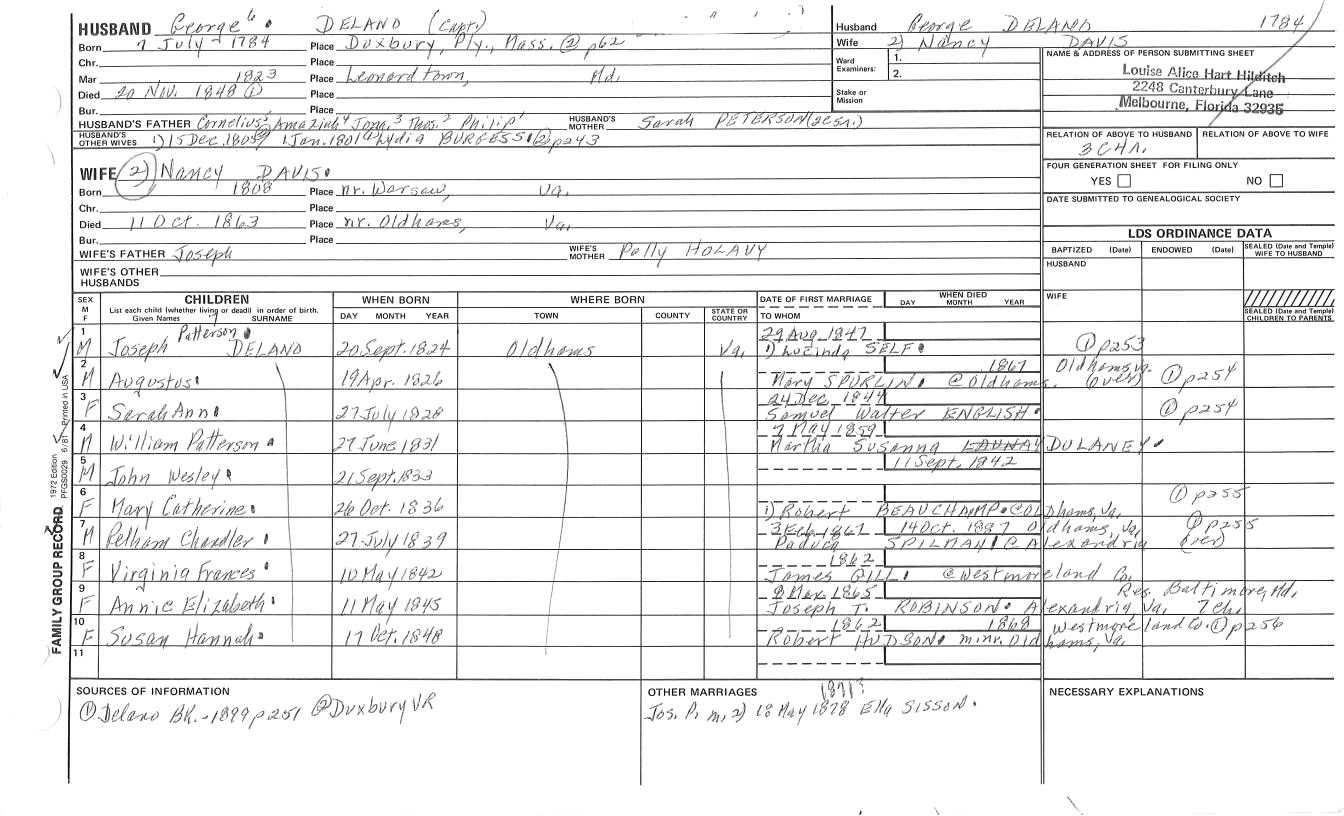 HUSBAND George 6 DELANO (Capt.)
Born 7 July 1784 Place Duxbury, Ply., Mass. ② p62
Chr. Place
Mar 1823 Place Leonardtown, Md.
Died 20 Nov. 1848 ① Place
Bur. Place
HUSBAND'S FATHER Cornelius 5, Amaziah 4 Jona. 3 Thos. 2 Philip 1 HUSBAND'S MOTHER Sarah PETERSON
HUSBAND'S OTHER WIVES 1) 15 Dec. 1805 1 Jan. 1801 Lydia BURGESS ② p243
Husband George DELANO 1784
Wife 2) Nancy DAVIS
Ward Examiners: 1.
2.
Stake or Mission
NAME & ADDRESS OF PERSON SUBMITTING SHEET
Louise Alice Hart Hilditch
2248 Canterbury Lane
Melbourne, Florida 32935
RELATION OF ABOVE TO HUSBAND RELATION OF ABOVE TO WIFE
FOUR GENERATION SHEET FOR FILING ONLY
YES NO
DATE SUBMITTED TO GENEALOGICAL SOCIETY
WIFE 2) Nancy DAVIS
Born 1808 Place nr. Warsaw, Va.
Chr. Place
Died 11 Oct. 1863 Place nr. Oldhams, Va.
Bur. Place
WIFE'S FATHER Joseph WIFE'S MOTHER Polly HOLAVY
WIFE'S OTHER HUSBANDS
LDS ORDINANCE DATA
BAPTIZED (Date) ENDOWED (Date) SEALED (Date and Temple) WIFE TO HUSBAND
HUSBAND
WIFE
SEALED (Date and Temple) CHILDREN TO PARENTS
SEX M F CHILDREN List each child (whether living or dead) in order of birth. Given Names SURNAME
WHEN BORN DAY MONTH YEAR
WHERE BORN TOWN COUNTY STATE OR COUNTRY
DATE OF FIRST MARRIAGE TO WHOM
WHEN DIED DAY MONTH YEAR
1 M Joseph Patterson 7 DELANO 20 Sept. 1824 Oldhams Va. 29 Aug 1847 1) Lucinda SELF ① p253
2 M Augustus 19 Apr. 1826 1867 Mary SPURLIN @ Oldhams. Oldhams, Va. (over) ① p254
3 F Sarah Ann 27 July 1828 24 Dec 1844 Samuel Walter ENGLISH ① p254
4 M William Patterson 27 June 1831 7 May 1859 Martha Susanna DULANEY
5 M John Wesley 21 Sept. 1833 11 Sept. 1842
6 F Mary Catherine 26 Oct. 1836 1) Robert BEAUCHAMP Oldhams, Va. ① p255
7 M Pelham Chandler 27 July 1839 3 Feb. 1867 14 Oct. 1897 Oldhams, Va. Paduca SPILMAN @ Alexandria ① p255 (over)
8 F Virginia Frances 10 May 1842 1862 James GILL @ Westmoreland Co.
9 F Annie Elizabeth 11 May 1845 8 Mar. 1865 Joseph T. ROBINSON Alexandria, Va. 7 ch. Res. Baltimore, Md.
10 F Susan Hannah 17 Oct. 1848 1862 1868 Westmoreland Co. ① p256 Robert HUDSON m. nr. Oldhams, Va.
11
SOURCES OF INFORMATION
① Delano Bk. - 1899 p251 ② Duxbury VR
OTHER MARRIAGES 1871?
Jos. P. m. 2) 18 May 1878 Ella SISSON.
NECESSARY EXPLANATIONS
FAMILY GROUP RECORD 1972 Edition PFGS0029 6/81 Printed in USA